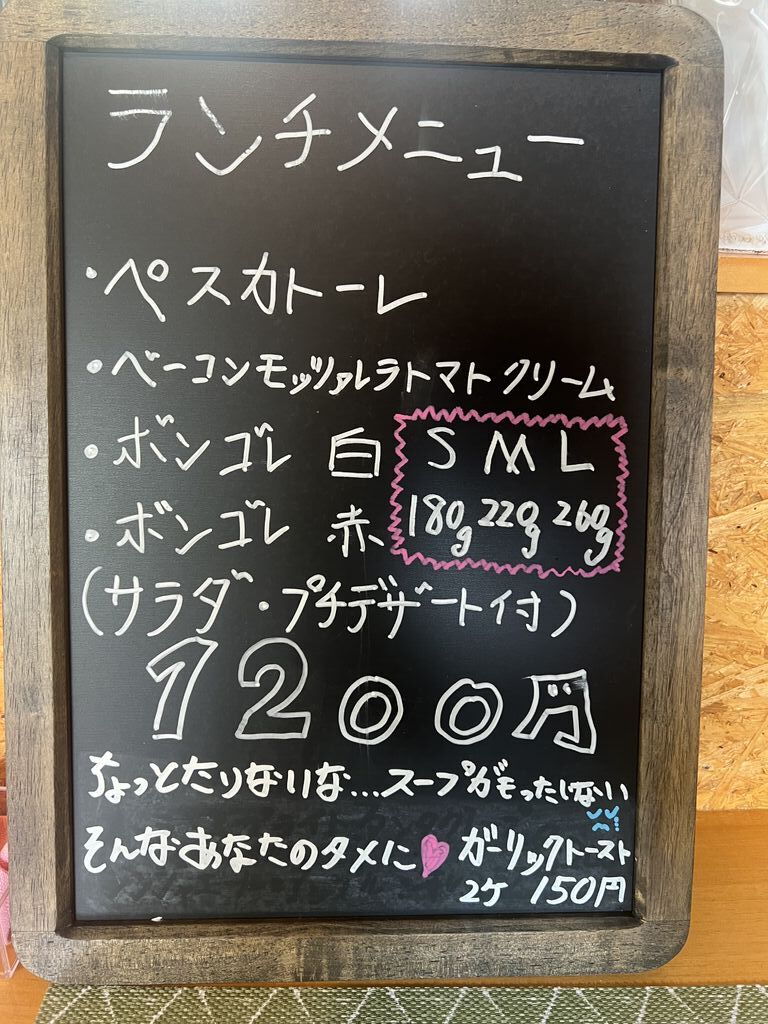 ランチメニュー
・ペスカトーレ
・ベーコンモッツァレラトマトクリーム
・ボンゴレ 白
・ボンゴレ 赤
S M L
180g 220g 260g
(サラダ・プチデザート付)
1200円
ちょっとたりないな...スープがもったいない
そんなあなたのタメに♥ ガーリックトースト
2ケ 150円